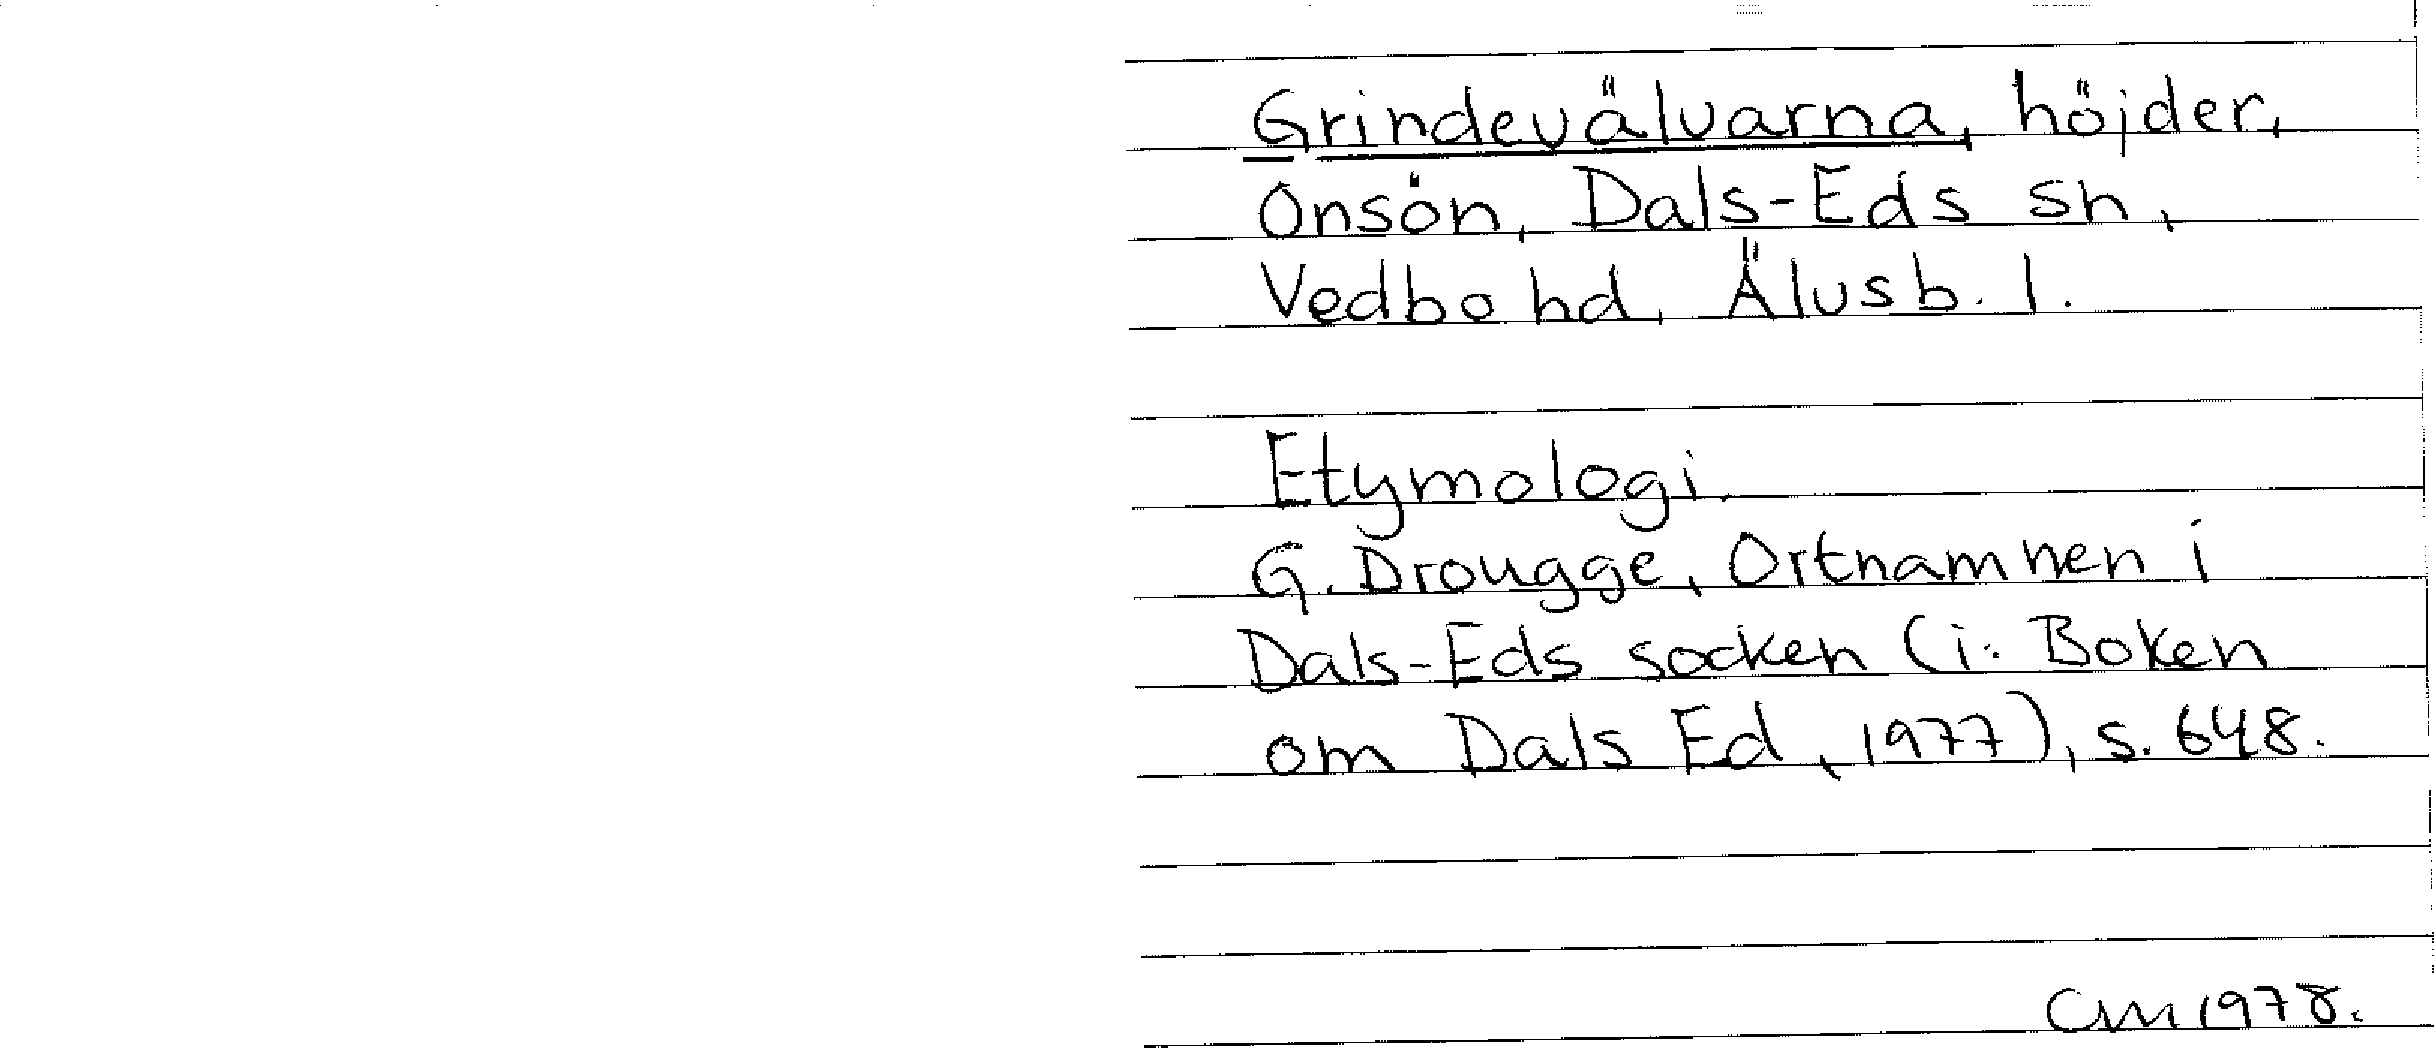 Grindevälvarna, höjder,
Onsön, Dals-Eds sn,
Vedbo hd, Älvsb. l.
Etymologi.
G. Drougge, Ortnamnen i
Dals-Eds socken (i: Boken
om Dals Ed, 1977), s. 648.
CM 1978.